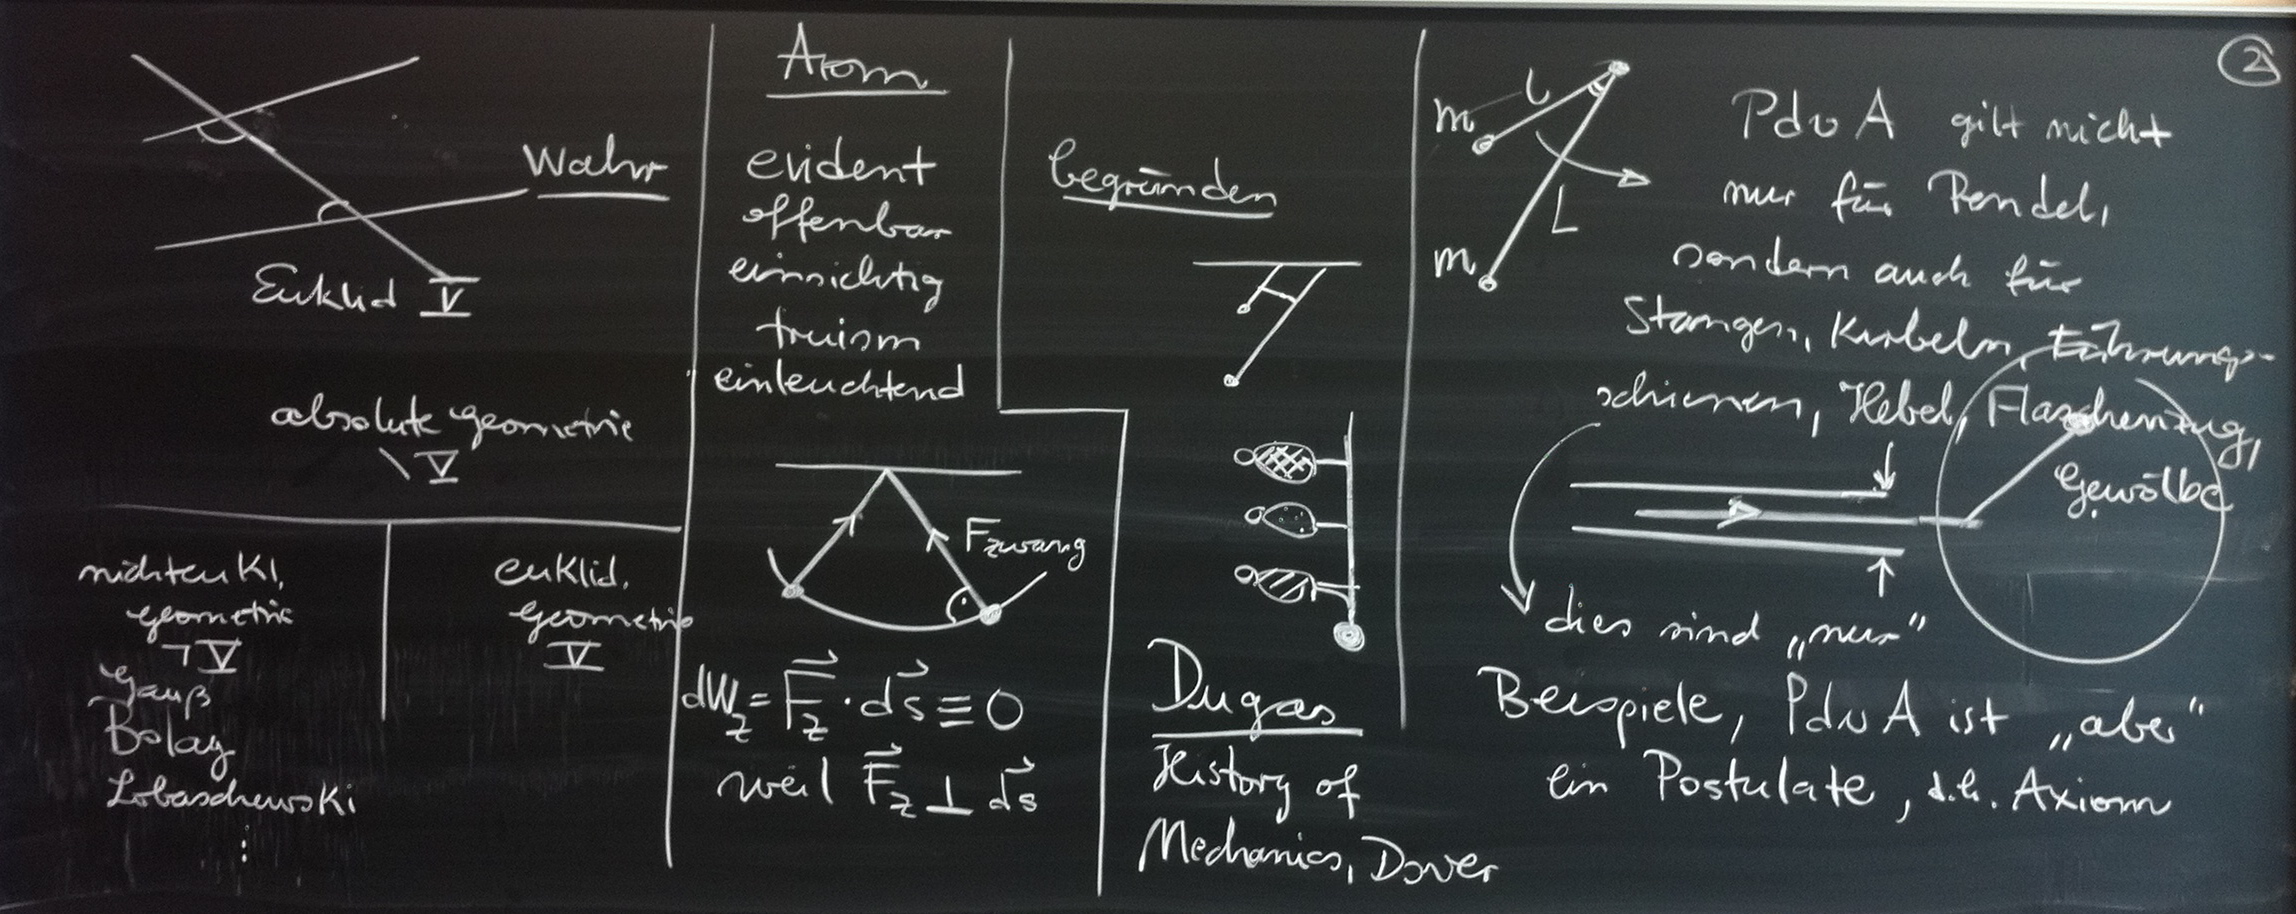 Wahr
Euklid V
absolute Geometrie
\ V
nichteukl.
Geometrie
¬ V
Gauß
Bolay
Lobaschewski
⋮
euklid.
Geometrie
V
Axiom
evident
offenbar
einsichtig
truism
einleuchtend
F_zwang
dW_z = F⃗_z · ds⃗ ≡ 0
weil F⃗_z ⊥ ds⃗
begründen
Dugas
History of
Mechanics, Dover
2
m l
L
m
PdvA gilt nicht
nur für Pendel,
sondern auch für
Stangen, Kurbeln, Führungs-
schienen, Hebel, Flaschenzug,
Gewölbe
dies sind „nur"
Beispiele, PdvA ist „aber"
ein Postulate, d.h. Axiom